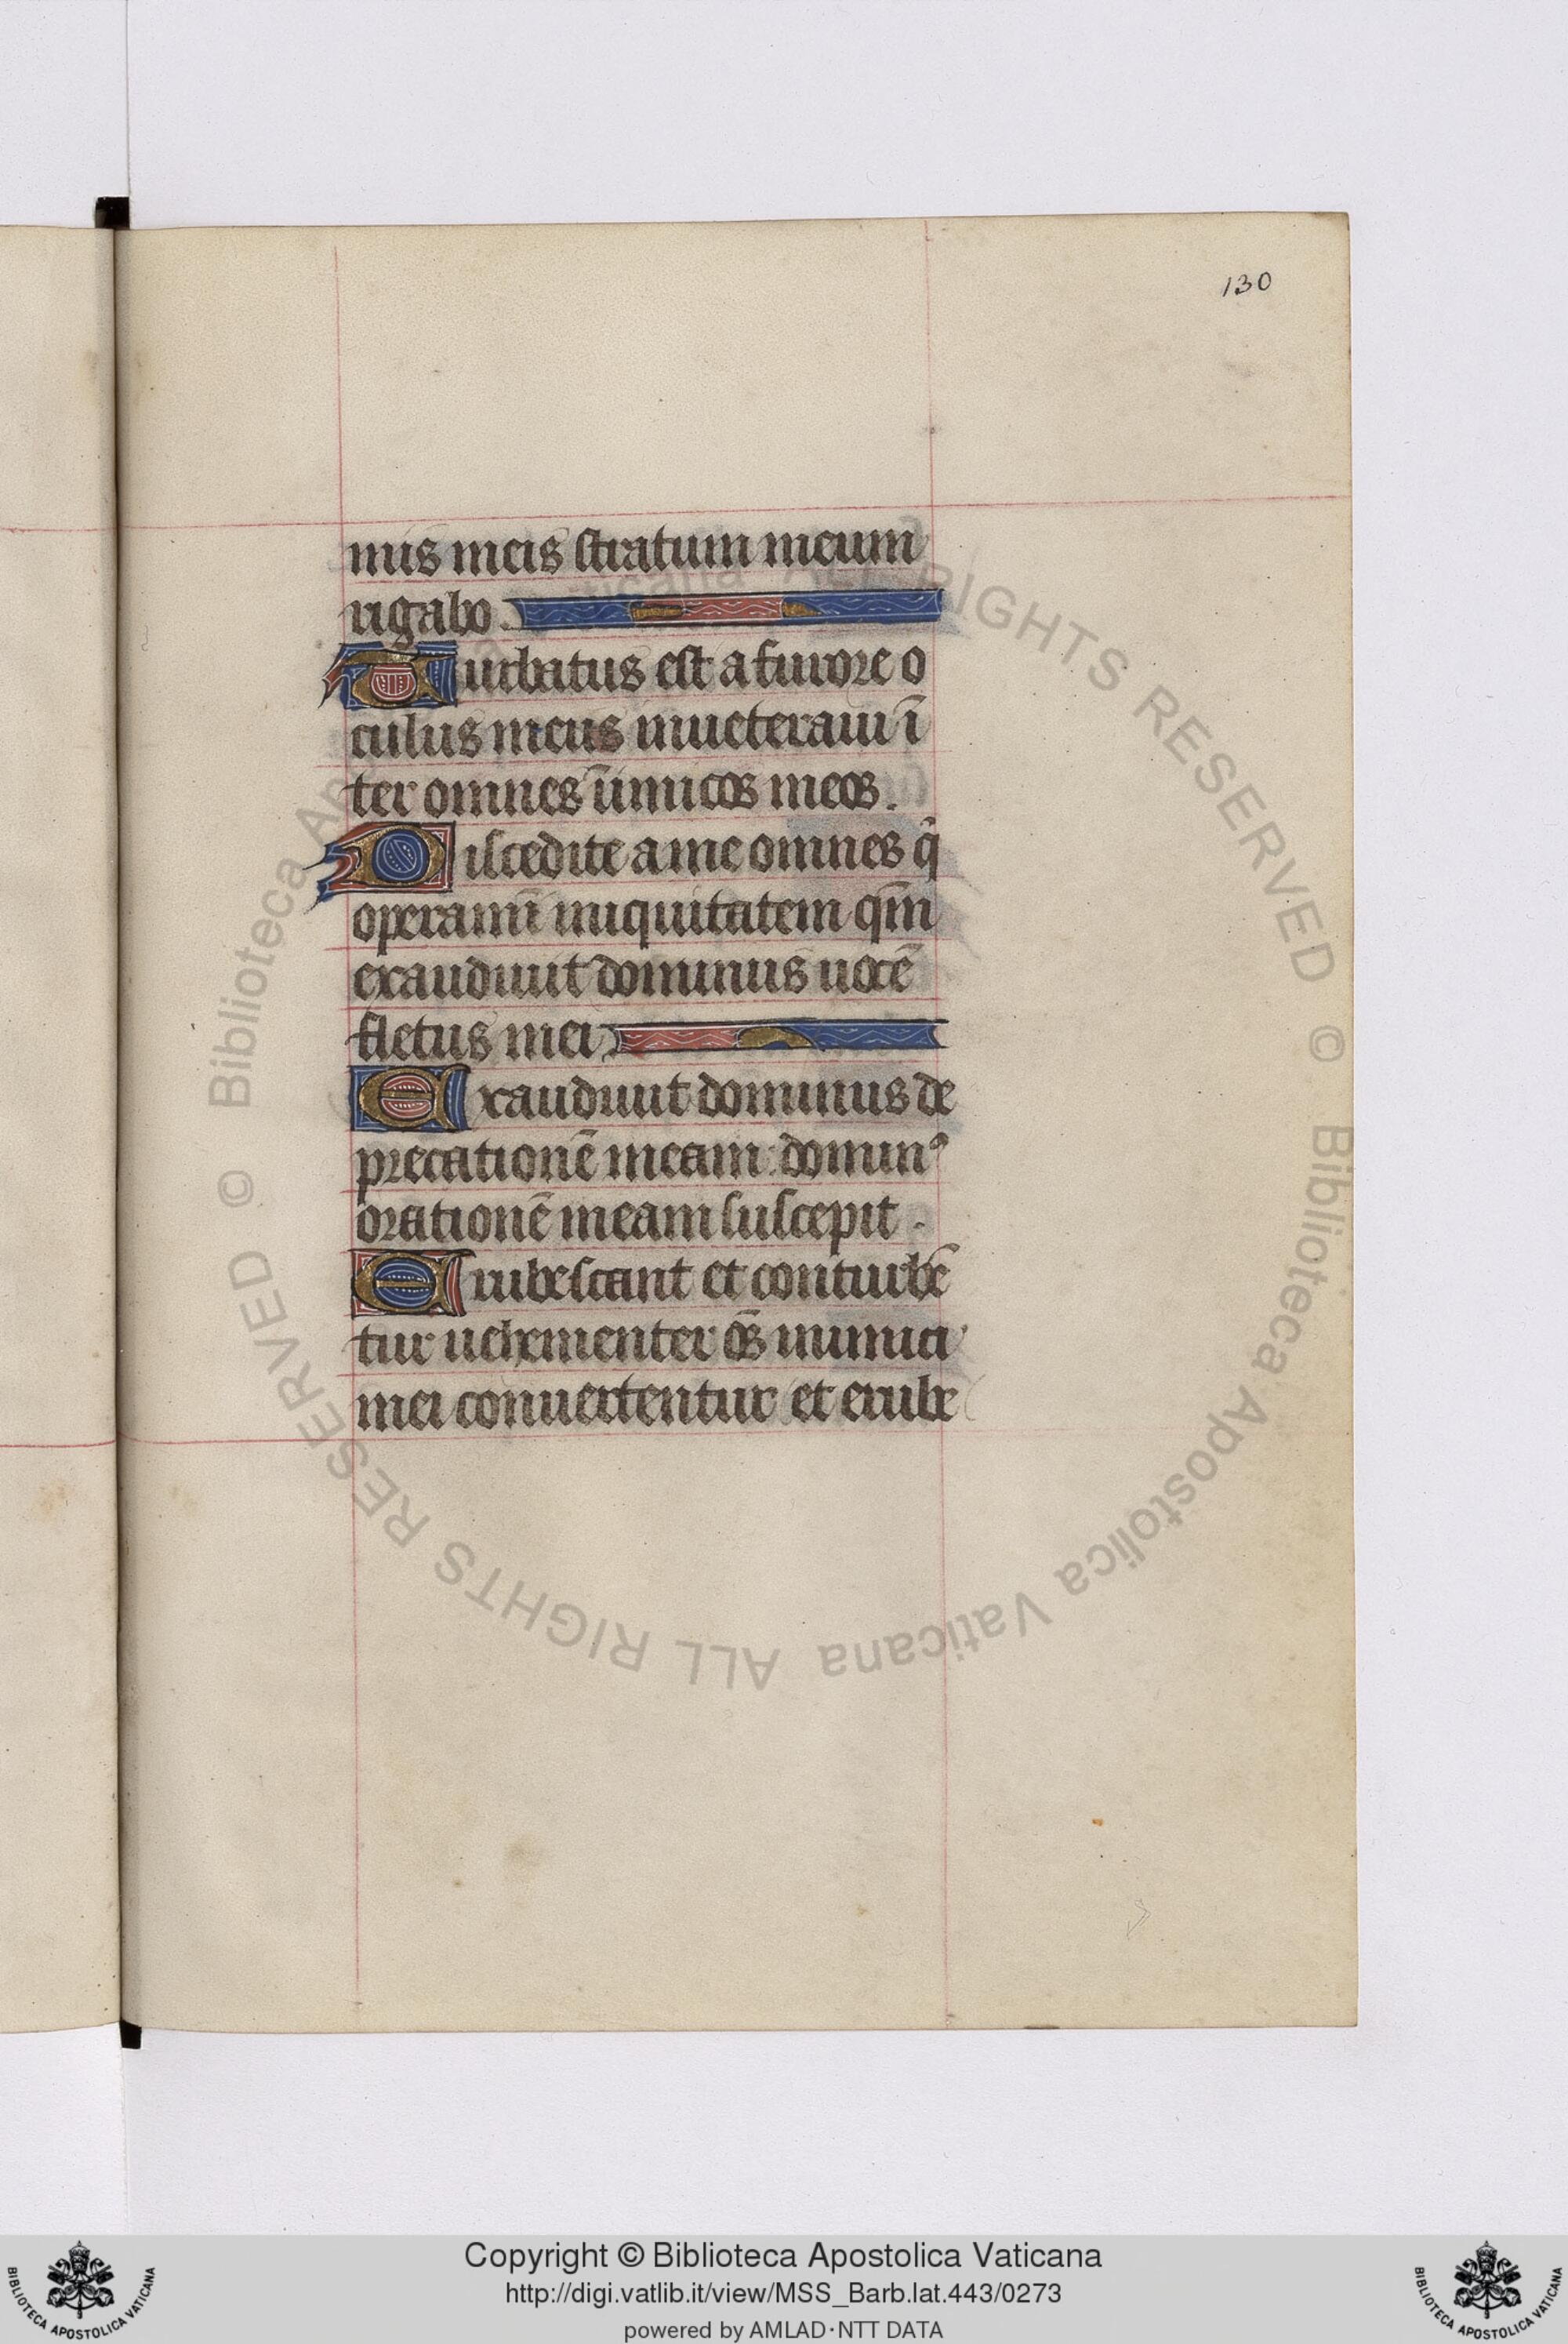 130
mis meis stratum meum
rigabo.
Turbatus est a furore o
culus meus inueteraui ī
ter omnes inimicos meos.
Discedite a me omnes q̄
operamī iniquitatem qm̄
exaudiuit dominus uocē
fletus mei
Exaudiuit dominus de
precationē meam: dominꝰ
orationē meam suscepit.
Erubescant et conturbē
tur uehementer oēs inimici
mei conuertentur et erube
© Biblioteca Apostolica Vaticana ALL RIGHTS RESERVED
© Biblioteca Apostolica Vaticana ALL RIGHTS RESERVED
Copyright © Biblioteca Apostolica Vaticana
http://digi.vatlib.it/view/MSS_Barb.lat.443/0273
powered by AMLAD·NTT DATA
BIBLIOTECA APOSTOLICA VATICANA
BIBLIOTECA APOSTOLICA VATICANA